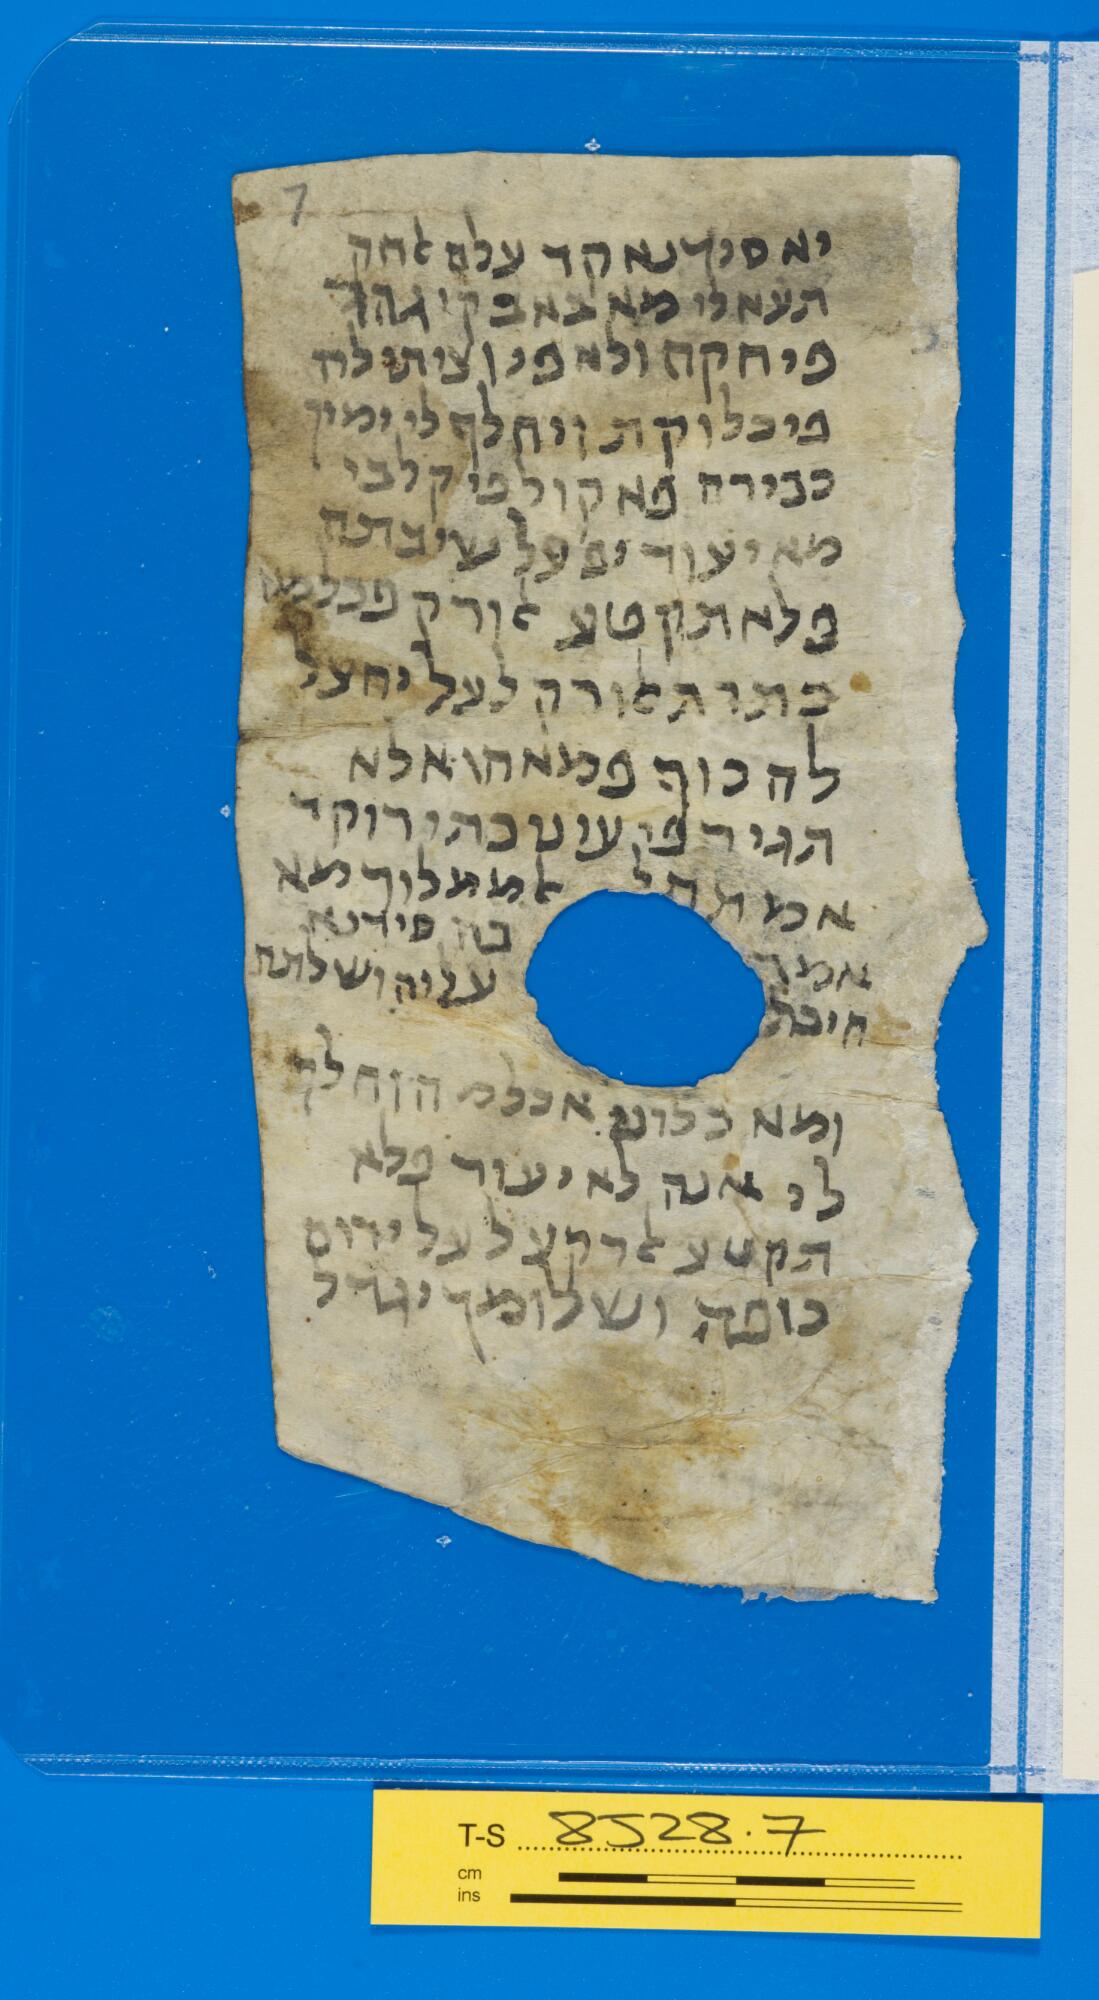 7
יא סידנא קד עלם אחק
תעאלי מא באבקי גהד
פיחקה ולא פין ציתי לה
פיכלוקת ויחלף לי ימין
כבירה פאקול פי קלבי
מא יעוד יפעל שי בתה
פלא תקטע אורק פכלמא
כתרת אורק לעל יחצל
לה כוף פמא הו אלא
תגיר פי עוט כתיר וקד
אמתה אממלוך מא
אמר בה סידנא
חיבת עליה ושלתה
ומא כלוש אכלמה וחלף
לי אנה לא יעוד פלא
תקטע ארקע לעל ידום
כופה ושלומך יגדל
T-S 8J28.7
cm
ins